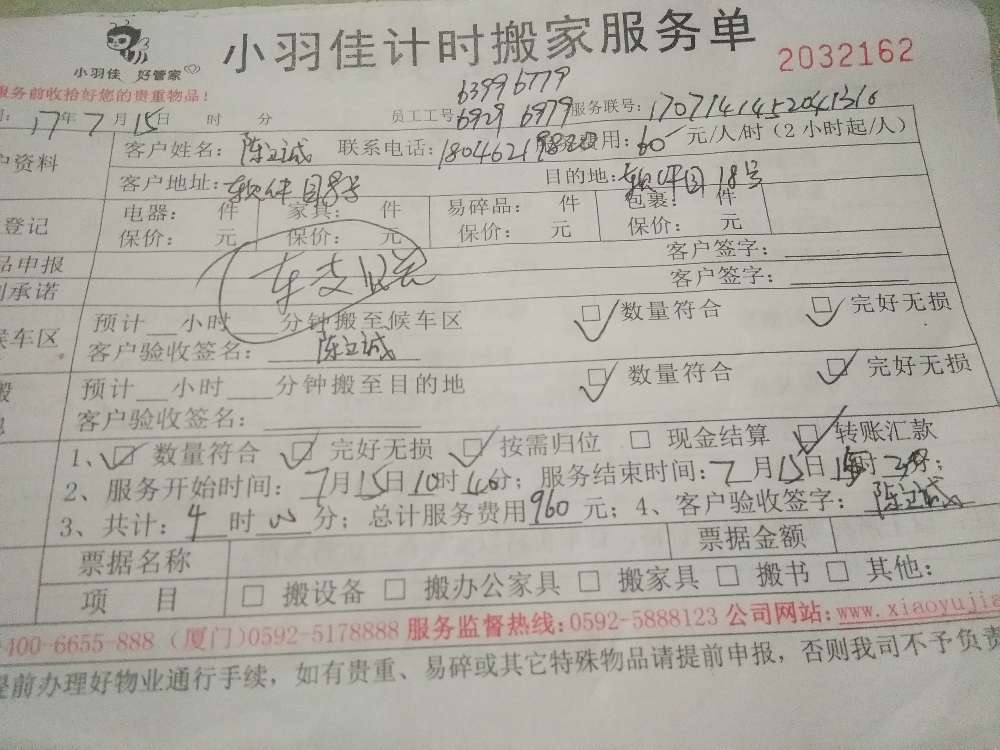 小羽佳 好管家
小羽佳计时搬家服务单
2032162
服务前收拾好您的贵重物品！
63996779
17年7月15日 时 分 员工工号 6929 6979 服务联号：
户资料 客户姓名：陈立诚 联系电话： 费用：60 元/人/时（2小时起/人）
客户地址：软件园8号 目的地：软件园18号
登记 电器： 件 家具： 件 易碎品： 件 包裹： 件
保价： 元 保价： 元 保价： 元 保价： 元
品申报 客户签字：
承诺 客户签字：
候车区 预计 小时 分钟搬至候车区 □ 数量符合 □ 完好无损
客户验收签名：陈立诚
搬 预计 小时 分钟搬至目的地 □ 数量符合 □ 完好无损
客户验收签名：
1、□ 数量符合 □ 完好无损 □ 按需归位 □ 现金结算 □ 转账汇款
2、服务开始时间：7月15日10时40分；服务结束时间：7月15日 时 分；
3、共计：4时 分；总计服务费用960元；4、客户验收签字：陈立诚
票据名称 票据金额
项 目 □ 搬设备 □ 搬办公家具 □ 搬家具 □ 搬书 □ 其他：
400-6655-888（厦门）0592-5178888 服务监督热线：0592-5888123 公司网站：www.xiaoyujia
提前办理好物业通行手续，如有贵重、易碎或其它特殊物品请提前申报，否则我司不予负责